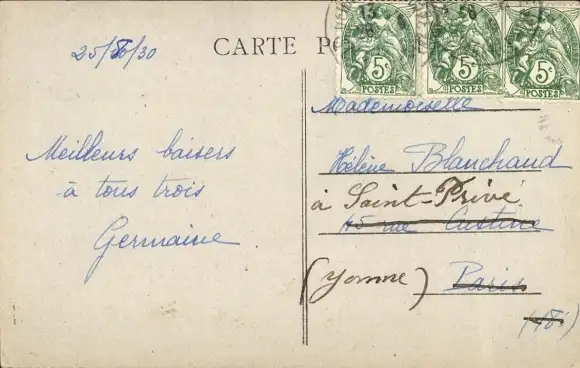 25/8/30
CARTE PO
5c
POSTES
5c
POSTES
5c
POSTES
Meilleurs baisers
à tous trois
Germaine
Mademoiselle
Hélène Blanchaud
à Saint-Privé
45 rue Custine
(Yonne) Paris